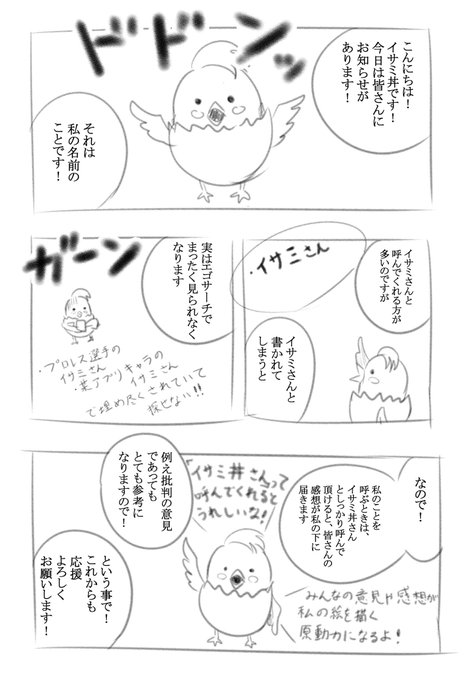 ドドドンッ
こんにちは！
イサミ丼です！
今日は皆さんに
お知らせが
あります！
それは
私の名前の
ことです！
イサミさんと
呼んでくれる方が
多いのですが
・イサミさん
イサミさんと
書かれて
しまうと
実はエゴサーチで
まったく見られなく
なります
ガーン
・プロレス選手の
イサミさん
・某アプリキャラの
イサミさん
で埋め尽くされていて
探せない!!
なので！
私のことを
呼ぶときは、
イサミ丼さん
としっかり呼んで
頂けると、皆さんの
感想が私の下に
届きます
「イサミ丼さん」って
呼んでくれると
うれしいな！
例え批判の意見
であっても
とても参考に
なりますので！
みんなの意見や感想が
私の絵を描く
原動力になるよ！
という事で！
これからも
応援
よろしく
お願いします！